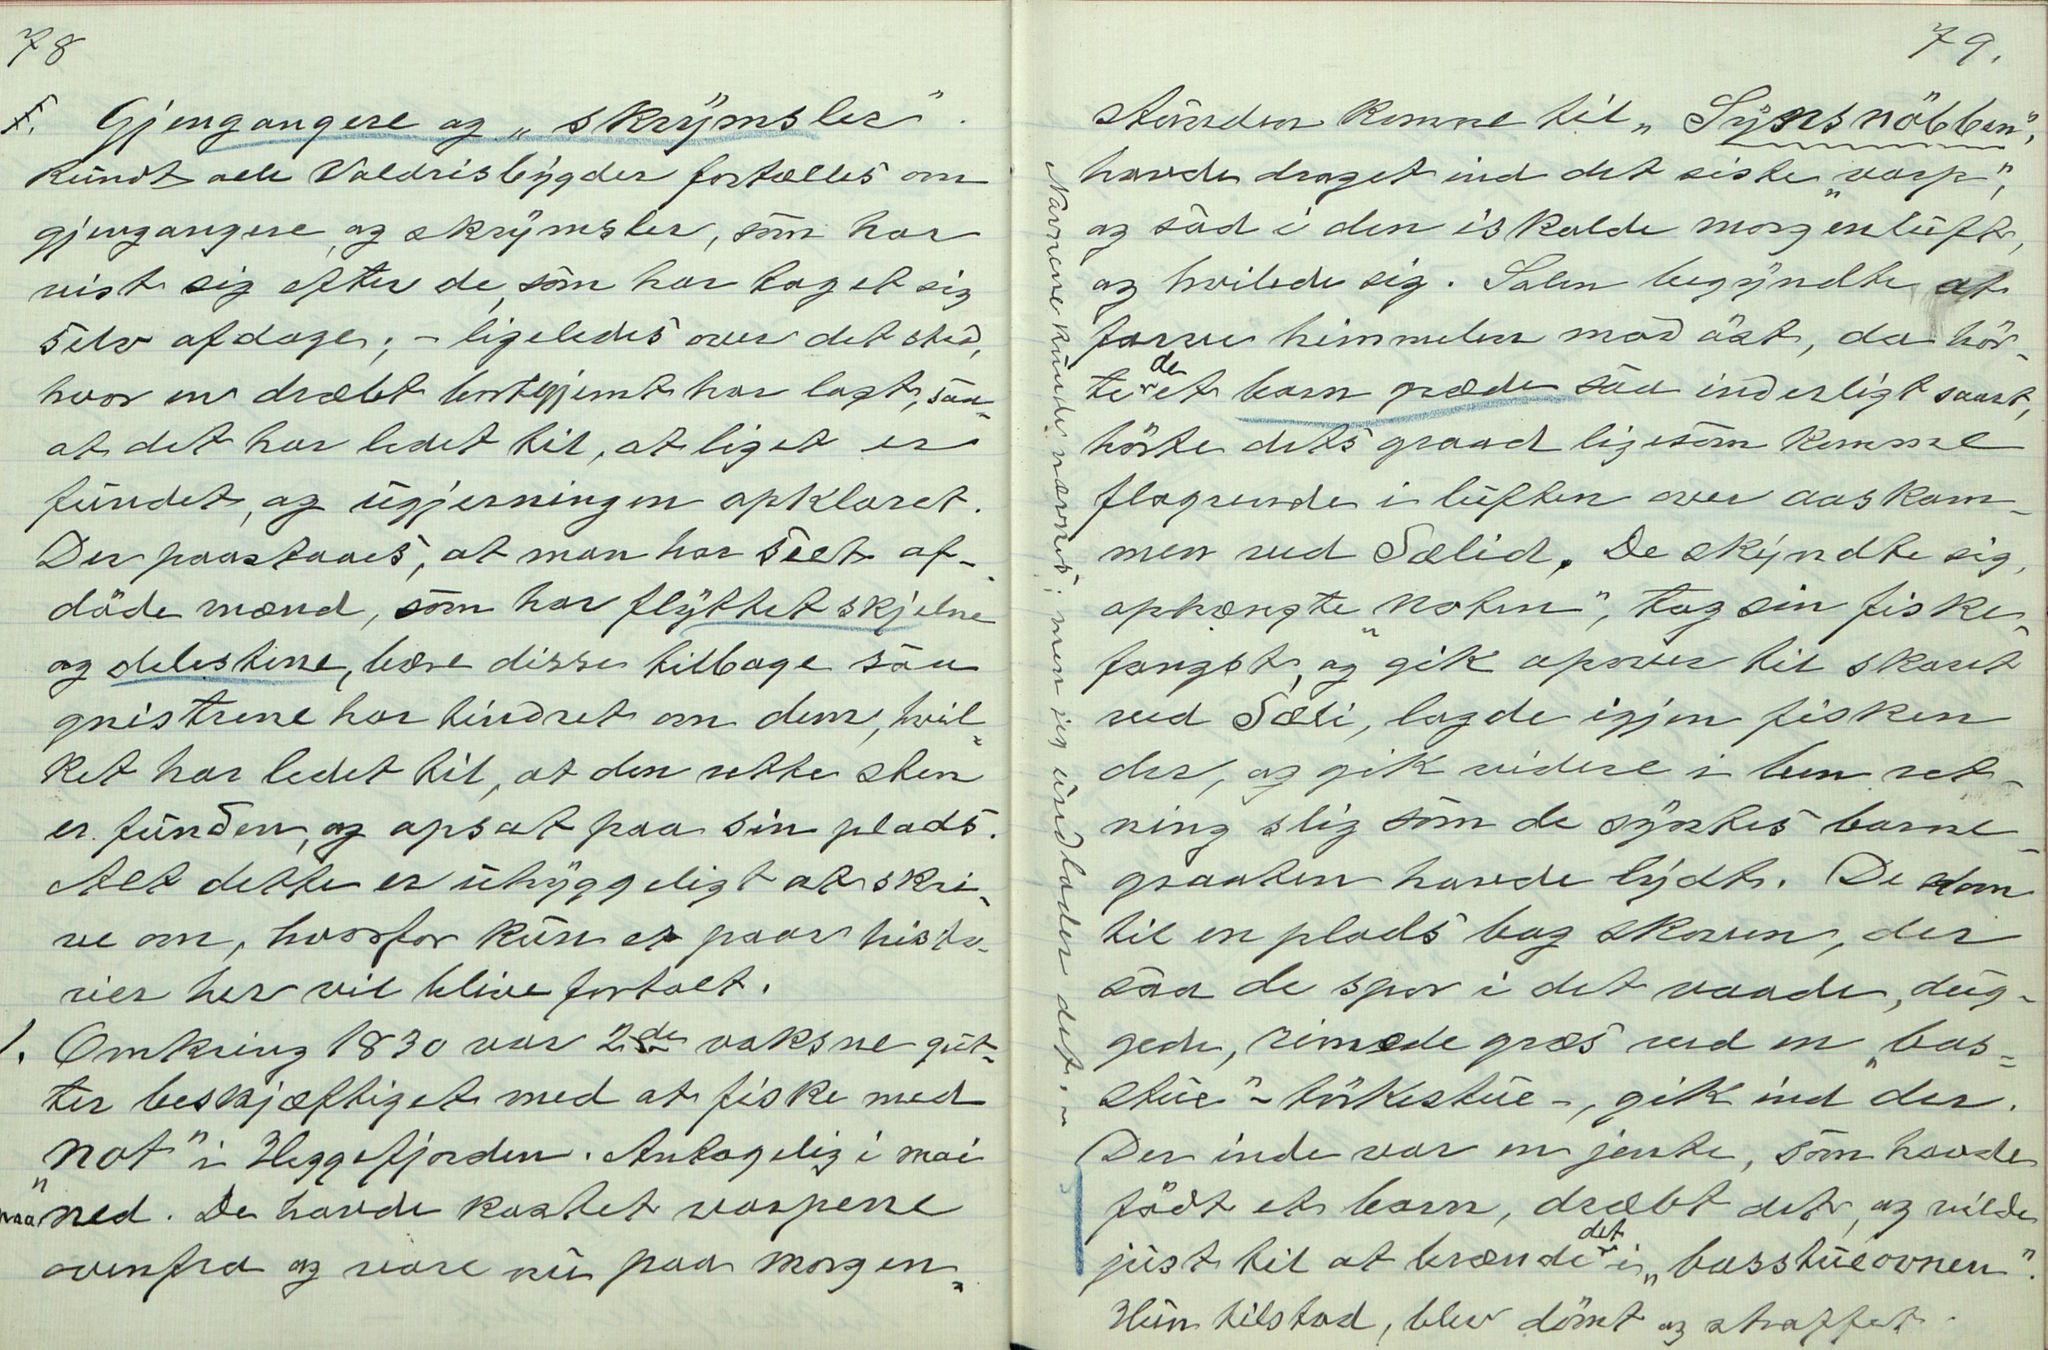 78
f. Gjengangere og „skrymsler".
Rundt alle Valdrisbygder fortælles om
gjengangere og skrymsler, som har
vist sig efter de, som har taget sig
selv afdage; - ligeledes over det sted,
hvor en dræbt bortgjemt har lagt, saa-
at det har ledet til, at liget er
fundet, og ugjerningen opklaret.
Der paastaaes, at man har seet af-
döde mænd, som har flyttet skjelne
og delestene, bære disse tilbage saa
gnistrene har tindret om dem, hvil-
ket har ledet til, at den rette sten
er funden, og opsat paa sin plads.
Alt dette er uhyggeligt at skri-
ve om, hvorfor kun et paar histo-
rier her vil blive fortalt.
1. Omkring 1830 var 2de voksne gut-
ter beskjæftiget med at fiske med
„not" i Heggefjorden. Antagelig i mai
maaned. De havde kastet varpene
ovenfra og vare nu paa morgen-
79.
stunden komne til „Synsnöbben",
havde draget ind det siste „varp",
og sad i den iskalde morgenluft,
og hvilede sig. Solen begyndte at
farve himmelen mod öst, da hör-
te de et barn græde saa inderligt saart,
hörte dets graad ligesom komme
flagrende i luften over aaskam-
men ved Sælid. De skyndte sig,
ophængte „noten", tog sin fiske-
fangst, og gik opover til skaret
ved Sæli, lagde igjen fisken
der, og gik videre i den ret-
ning slig som de syntes barne-
graaten havde lydt. De kom
til en plads bag skoven, der
saa de spor i det vaade, dug-
gede, rimede græs ved en „bas-
stue" - törkestue -, gik ind der.
Der inde var en jente, som havde
födt et barn, dræbt det, og vilde
just til at brænde det i „basstueovnen".
Hun tilstod, blev dömt og straffet.
Navnene kunde nævnes; men jeg undlader det. -